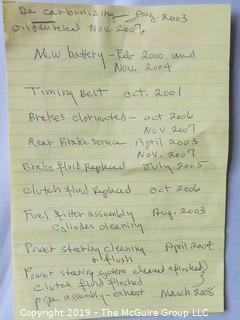 De carbonizing - Aug. 2003
Nov. 2007
New battery - Feb 2000 and
Nov. 2004
Timing Belt Oct. 2001
Brakes - Oct 2006
Nov 2007
Rear Brake Service April 2003
Nov. 2007
Brake fluid Replaced July 2005
Clutch fluid Replaced Oct 2006
Fuel filter assembly Aug. 2003
Cylinder cleaning
Power steering cleaning April 2004
+ flush
Power steering system cleaned + flushed
Clutch fluid flushed
pipe assembly - exhaust March 2008
Copyright 2019 - The McGuire Group LLC